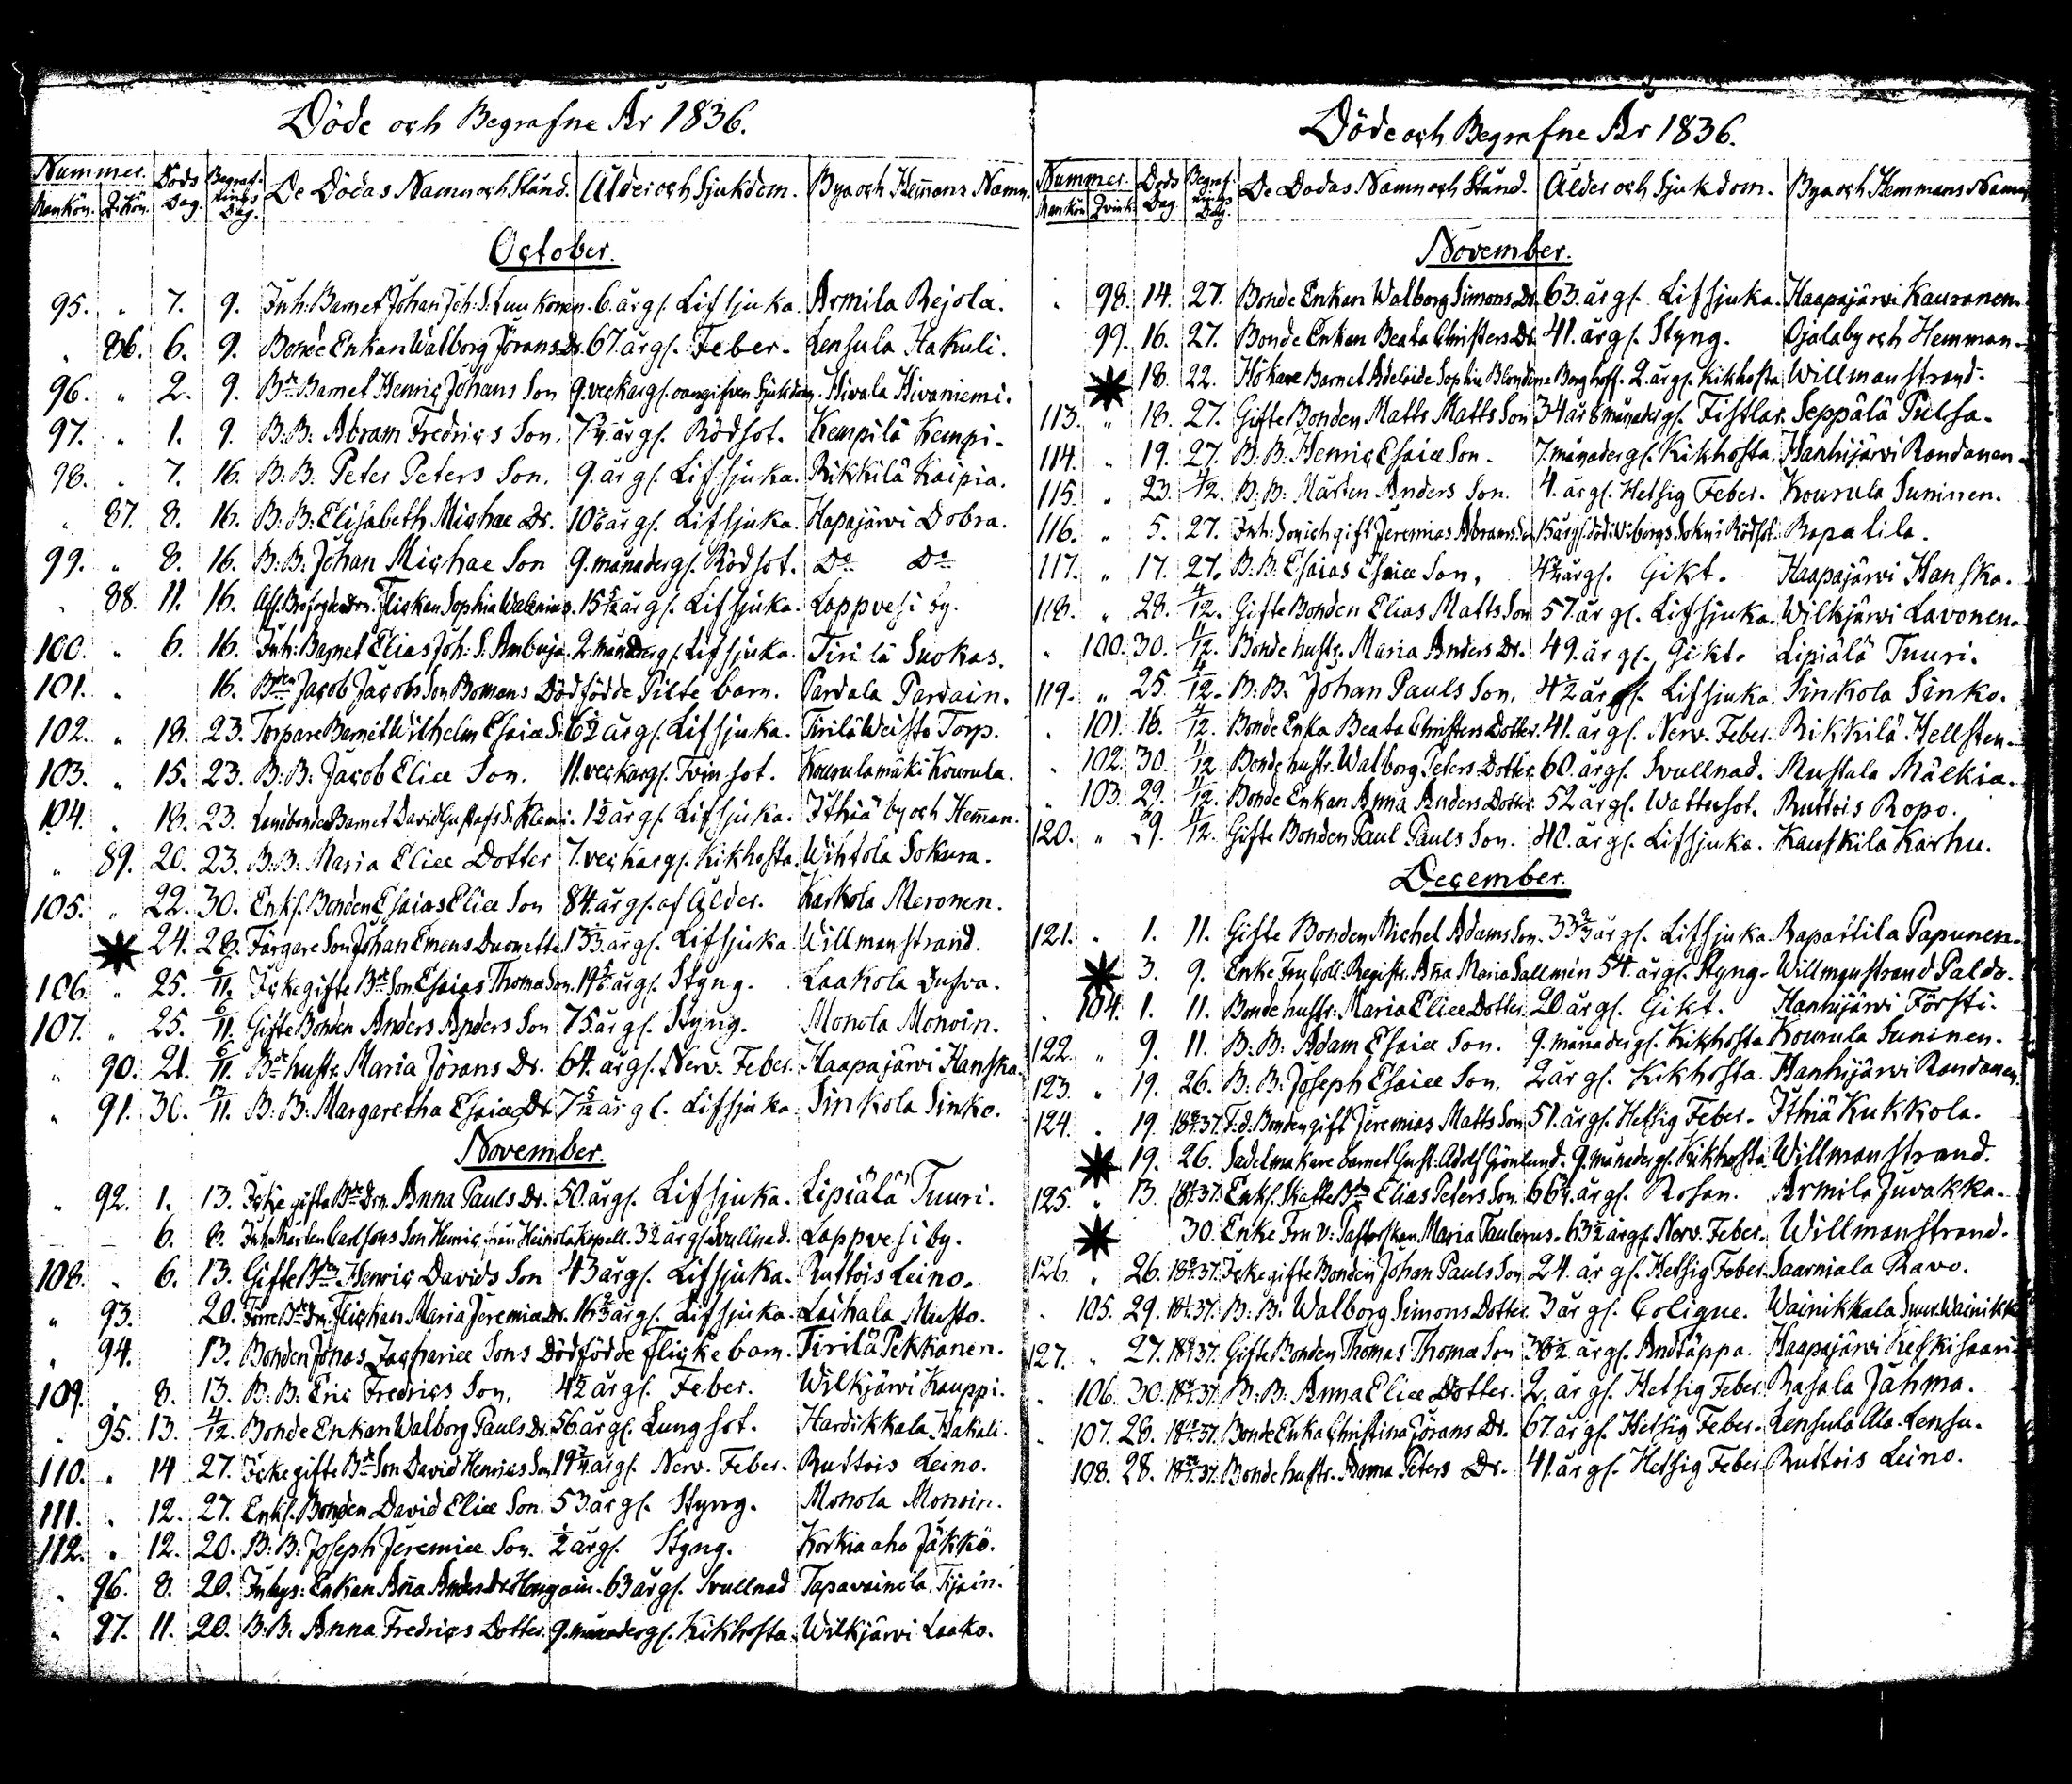 Döde och Begrafne År 1836.
Nummer. Döds Dag. Begrafnings Dag. De Dödas Namn och Stånd. Ålder och Sjukdom. Bya och Hemans Namn.
Mankön. Q. Kön.
October.
95. " 7. 9. Inh: Barnet Johan Joh: S. Luukonen. 6. år gl. Lifsjuka. Armila Rejola.
" 86. 6. 9. Bonde Enkan Walborg Jörans Dr. 67. år gl. Feber. Lensula Hakuli.
96. " 2. 9. Bde Barnet Henric Johans Son 9. veckar gl. oangifven Sjukdom. Hivala Hivaniemi.
97. " 1. 9. B: B: Abram Fredrics Son. 7 3/4 år gl. Rödsot. Kempilä Kempi.
98. " 7. 16. B: B: Peter Peters Son. 9. år gl. Lifsjuka. Rikkilä Kaipia.
" 87. 8. 16. B: B: Elisabeth Michae Dr. år gl. Lifsjuka. Hapajärvi Dobra.
99. " 8. 16. B: B: Johan Michae Son 9. månader gl. Rödsot. Do Do
" 88. 11. 16. Flickan Sophia Walenius. 15 år gl. Lifsjuka. Lappvesi by.
100. " 6. 16. Inh: Barnet Elias Joh: S. Ambuja. 2. månader gl. Lifsjuka. Tirilä Suokas.
101. " 16. Bden Jacob Jacobs Son Bomans Dödfödde Pilte barn. Partala Partain.
102. " 18. 23. Torpare Barnet Wilhelm Esaiæ S. 6 1/2 år gl. Lifsjuka. Tirilä Weisto Torp.
103. " 15. 23. B: B: Jacob Eliæ Son. 11. veckar gl. Tvinsot. Kourulamäki Kourula.
104. " 18. 23. Landbonde Barnet David Gustafs S. Klemi. 1 1/2 år gl. Lifsjuka. Ithiä by och Heman.
" 89. 20. 23. B: B: Maria Eliæ Dotter 7. veckar gl. Kikhosta. Wihtola Sokura.
105. " 22. 30. Enkl. Bonden Esaias Eliæ Son 84. år gl. af Ålder. Karkola Meronen.
24. 28. Färgare Son Johan Emens Duonette år gl. Lifsjuka. Willmanstrand.
106. " 25. 6/11. Icke gifte Bde Son Esaias Thomæ Son. år gl. Styng. Laakola Dufva.
107. " 25. 6/11. Gifte Bonden Anders Anders Son 75. år gl. Styng. Monola Monoin.
" 90. 21. 6/11. Bde hustr. Maria Jörans Dr. 64. år gl. Nerv. Feber. Haapajärvi Hanska.
" 91. 30. 13/11. B: B: Margaretha Esaiæ Dr. 7 5/12 år gl. Lifsjuka. Sinkola Sinko.
November.
" 92. 1. 13. Icke gifta Bde Drn. Anna Pauls Dr. 50. år gl. Lifsjuka. Lipiälä Tuuri.
6. 8. Inh: Mårten Carlsons Son Henric från Heinola Kapell. 3 1/2 år gl. Svullnad. Lappvesi by.
108. " 6. 13. Gifte Bden Henric Davids Son 43 år gl. Lifsjuka. Ruttois Leino.
" 93. 20. Flickan Maria Jeremiæ Dr. 16 2/3 år gl. Lifsjuka. Laihala Musto.
" 94. 13. Bonden Jonas Zachariæ Sons Dödfödde Flicke barn. Tirilä Pekkanen.
109. " 8. 13. B: B: Eric Fredrics Son. 4 1/2 år gl. Feber. Wilkjärvi Kauppi.
" 95. 13. 4/12. Bonde Enkan Walborg Pauls Dr. 56. år gl. Lungsot. Hardikkala Hakali.
110. " 14 27. Icke gifte Bde Son David Henrics Son 19 3/4 år gl. Nerv. Feber. Ruttois Leino.
111. " 12. 27. Enkl. Bonden David Eliæ Son. 53. år gl. Styng. Monola Monoin.
112. " 12. 20. B: B: Joseph Jeremiæ Son. 1/2 år gl. Styng. Korkia aho Jäkkö.
" 96. 8. 20. Inhys: Enkan Aña Anders Dr Hongain. 63 år gl. Svullnad Tapavainola, Tijain.
" 97. 11. 20. B: B: Anna Fredrics Dotter. 9. månader gl. Kikhosta. Wilkjärvi Laako.
Döde och Begrafne År 1836.
Nummer. Döds Dag. Begrafnings Dag. De Dödas Namn och Stånd. Ålder och Sjukdom. Bya och Hemmans Namn
Mankön Qvink.
November.
" 98. 14. 27. Bonde Enkan Walborg Simons Dr. 63. år gl. Lifsjuka. Haapajärvi Kauranen.
99. 16. 27. Bonde Enkan Beata Christers Dr. 41. år gl. Styng. Ojala by och Hemman.
18. 22. Hökare Barnet Adelaide Sophie Blondine Berghoff. 2. år gl. Kikhosta Willmanstrand.
113. " 18. 27. Gifte Bonden Matts Matts Son 34 år 8 månader gl. Fistlar. Seppälä Pulsa.
114. " 19. 27. B: B: Henric Esaiæ Son. 7. månader gl. Kikhosta. Hanhijärvi Rondanen.
115. " 23. 4/12. B: B: Mårten Anders Son. 4. år gl. Hetsig Feber. Kourula Suninen.
116. " 5. 27. Inh: Son ich gift Jeremias Abrams Son 15 år gl. död i Wiborgs Sokn i Rödsot. Rapatila.
117. " 17. 27. B. B. Esaias Esaiæ Son, år gl. Gikt. Haapajärvi Hanska.
118. " 28. 4/12. Gifte Bonden Elias Matts Son 57. år gl. Lifsjuka. Wilkjärvi Lavonen.
" 100. 30. 4/12. Bonde hustr. Maria Anders Dr. 49. år gl. Gikt. Lipiälä Tuuri.
119. " 25. 4/12. B: B: Johan Pauls Son. 4 1/2 år gl. Lifsjuka. Sinkola Sinko.
" 101. 16. 4/12. Bonde Enka Beata Christers Dotter. 41. år gl. Nerv. Feber. Rikkilä Hellsten.
" 102. 30. 11/12. Bonde hustr. Walborg Peters Dotter. 60. år gl. Svullnad. Mustala Mälkia.
" 103. 29. 11/12. Bonde Enkan Anna Anders Dotter. 52 år gl. Wattusot. Ruttois Ropo.
120. " 29. 11/12. Gifte Bonden Paul Pauls Son. 40. år gl. Lifsjuka. Kauskila Karhu.
December.
121. " 1. 11. Gifte Bonden Michel Adams Son. 33 2/3 år gl. Lifsjuka. Rapattila Papunen.
3. 9. Enke Fru Coll: Registr. Aña Maria Sallmén 54. år gl. Styng. Willmanstrand Paldo.
" 104. 1. 11. Bonde hustr: Maria Eliæ Dotter. 20. år gl. Gikt. Hanhijärvi Försti.
122. " 9. 11. B: B: Adam Esaiæ Son. 9. månader gl. Kikhosta Kourula Suninen.
123. " 19. 26. B. B: Joseph Esaiæ Son. 2 år gl. Kikhosta. Hanhijärvi Rondanen.
124. " 19. F: d: Bonden gift Jeremias Matts Son 51. år gl. Hetsig Feber. Ithiä Kukkola.
19. 26. Sadelmakare barnet Gust: Adolf Grönlund. 9. månader gl. Kikhosta Willmanstrand.
125. " 13. Enkl. Skatte Bden Elias Peters Son 66 år gl. Rosen. Armila Juvakka.
30. Enke Fru V: Pastorskan Maria Taulerus. 63 1/2 år gl. Nerv. Feber. Willmanstrand.
126. " 26. Icke gifte Bonden Johan Pauls Son 24. år gl. Hetsig Feber. Saarniala Ravo.
" 105. 29. B: B: Walborg Simons Dotter. 3 år gl. Colique. Wainikkala Suur Wainikka
127. " 27. Gifte Bonden Thomas Thomæ Son år gl. Andtäppa. Haapajärvi Keskisaari
" 106. 30. B: B: Anna Eliæ Dotter. 2. år gl. Hetsig Feber. Rasala Jähma.
" 107. 26. Bonde Enka Christina Jörans Dr. 67. år gl. Hetsig Feber. Lensula Ala-Lensu.
108. 28. Bonde hustr. Anna Peters Dr. 41. år gl. Hetsig Feber. Ruttois Leino.